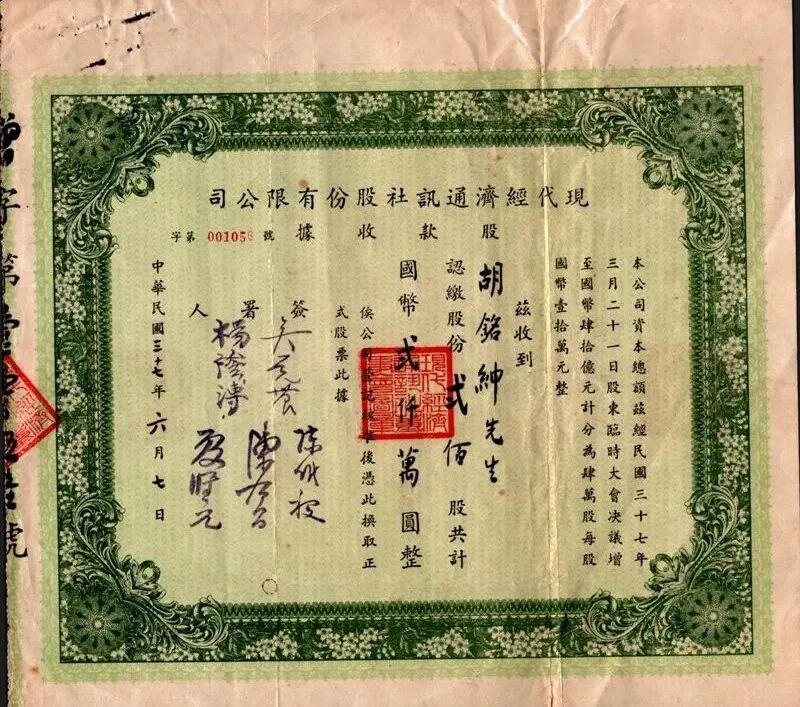 現代經濟通訊社股份有限公司
股款收據
字第 001056 號
本公司資本總額茲經民國三十七年
三月二十一日股東臨時大會决議增
至國幣肆拾億元計分為肆萬股每股
國幣壹拾萬元整
茲收到
胡銘紳先生
認繳股份 貳佰 股共計
國幣 貳仟萬 圓整
俟公司 後憑此換取正
式股票此據
簽署人
楊蔭溥
中華民國三十七年 六月七日